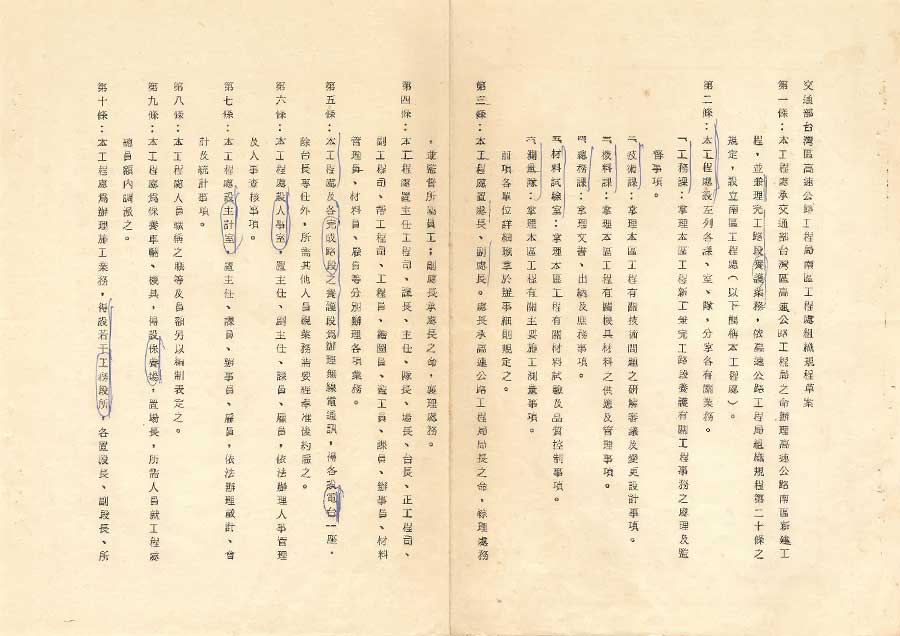 交通部台灣區高速公路工程局南區工程處組織規程草案
第一條：本工程處承交通部台灣區高速公路工程局之命辦理高速公路南區新建工
程，並兼理完工路段養護業務，依高速公路工程局組織規程第二十條之
規定，設立南區工程處（以下簡稱本工程處）。
第二條：本工程處設左列各課、室、隊，分掌各有關業務。
一、工務課：掌理本區工程新工兼完工路段養護有關工程事務之處理及監
督事項。
二、技術課：掌理本區工程有關技術問題之研辦審議及變更設計事項。
三、機料課：掌理本區工程有關機具材料之供應及管理事項。
四、總務課：掌理文書、出納及庶務事項。
五、材料試驗室：掌理本區工程有關材料試驗及品質控制事項。
六、測量隊：掌理本區工程有關主要施工測量事項。
前項各單位詳細職掌於辦事細則規定之。
第三條：本工程處置處長、副處長。處長承高速公路工程局局長之命，綜理處務
，並監督所屬員工；副處長承處長之命，襄理處務。
第四條：本工程處置主任工程司、課長、主任、隊長、場長、台長、正工程司、
副工程司、幫工程司、工程員、繪圖員、監工員、課員、辦事員、材料
管理員、材料員、雇員等分別辦理各項業務。
第五條：本工程處及各完成路段之養護段為辦理無線電通訊，得各設電台一座，
除台長專任外，所需其他人員視業務需要經奉准後約雇之。
第六條：本工程處設人事室，置主任、副主任、課員、雇員，依法辦理人事管理
及人事查核事項。
第七條：本工程處設主計室，置主任、課員、辦事員、雇員，依法辦理歲計、會
計及統計事項。
第八條：本工程處人員職稱之職等及員額另以編制表定之。
第九條：本工程處為保養車輛、機具，得設保養場，置場長，所需人員就工程處
總員額內調派之。
第十條：本工程處為辦理施工業務，得設若干工務段所，各置段長、副段長、所